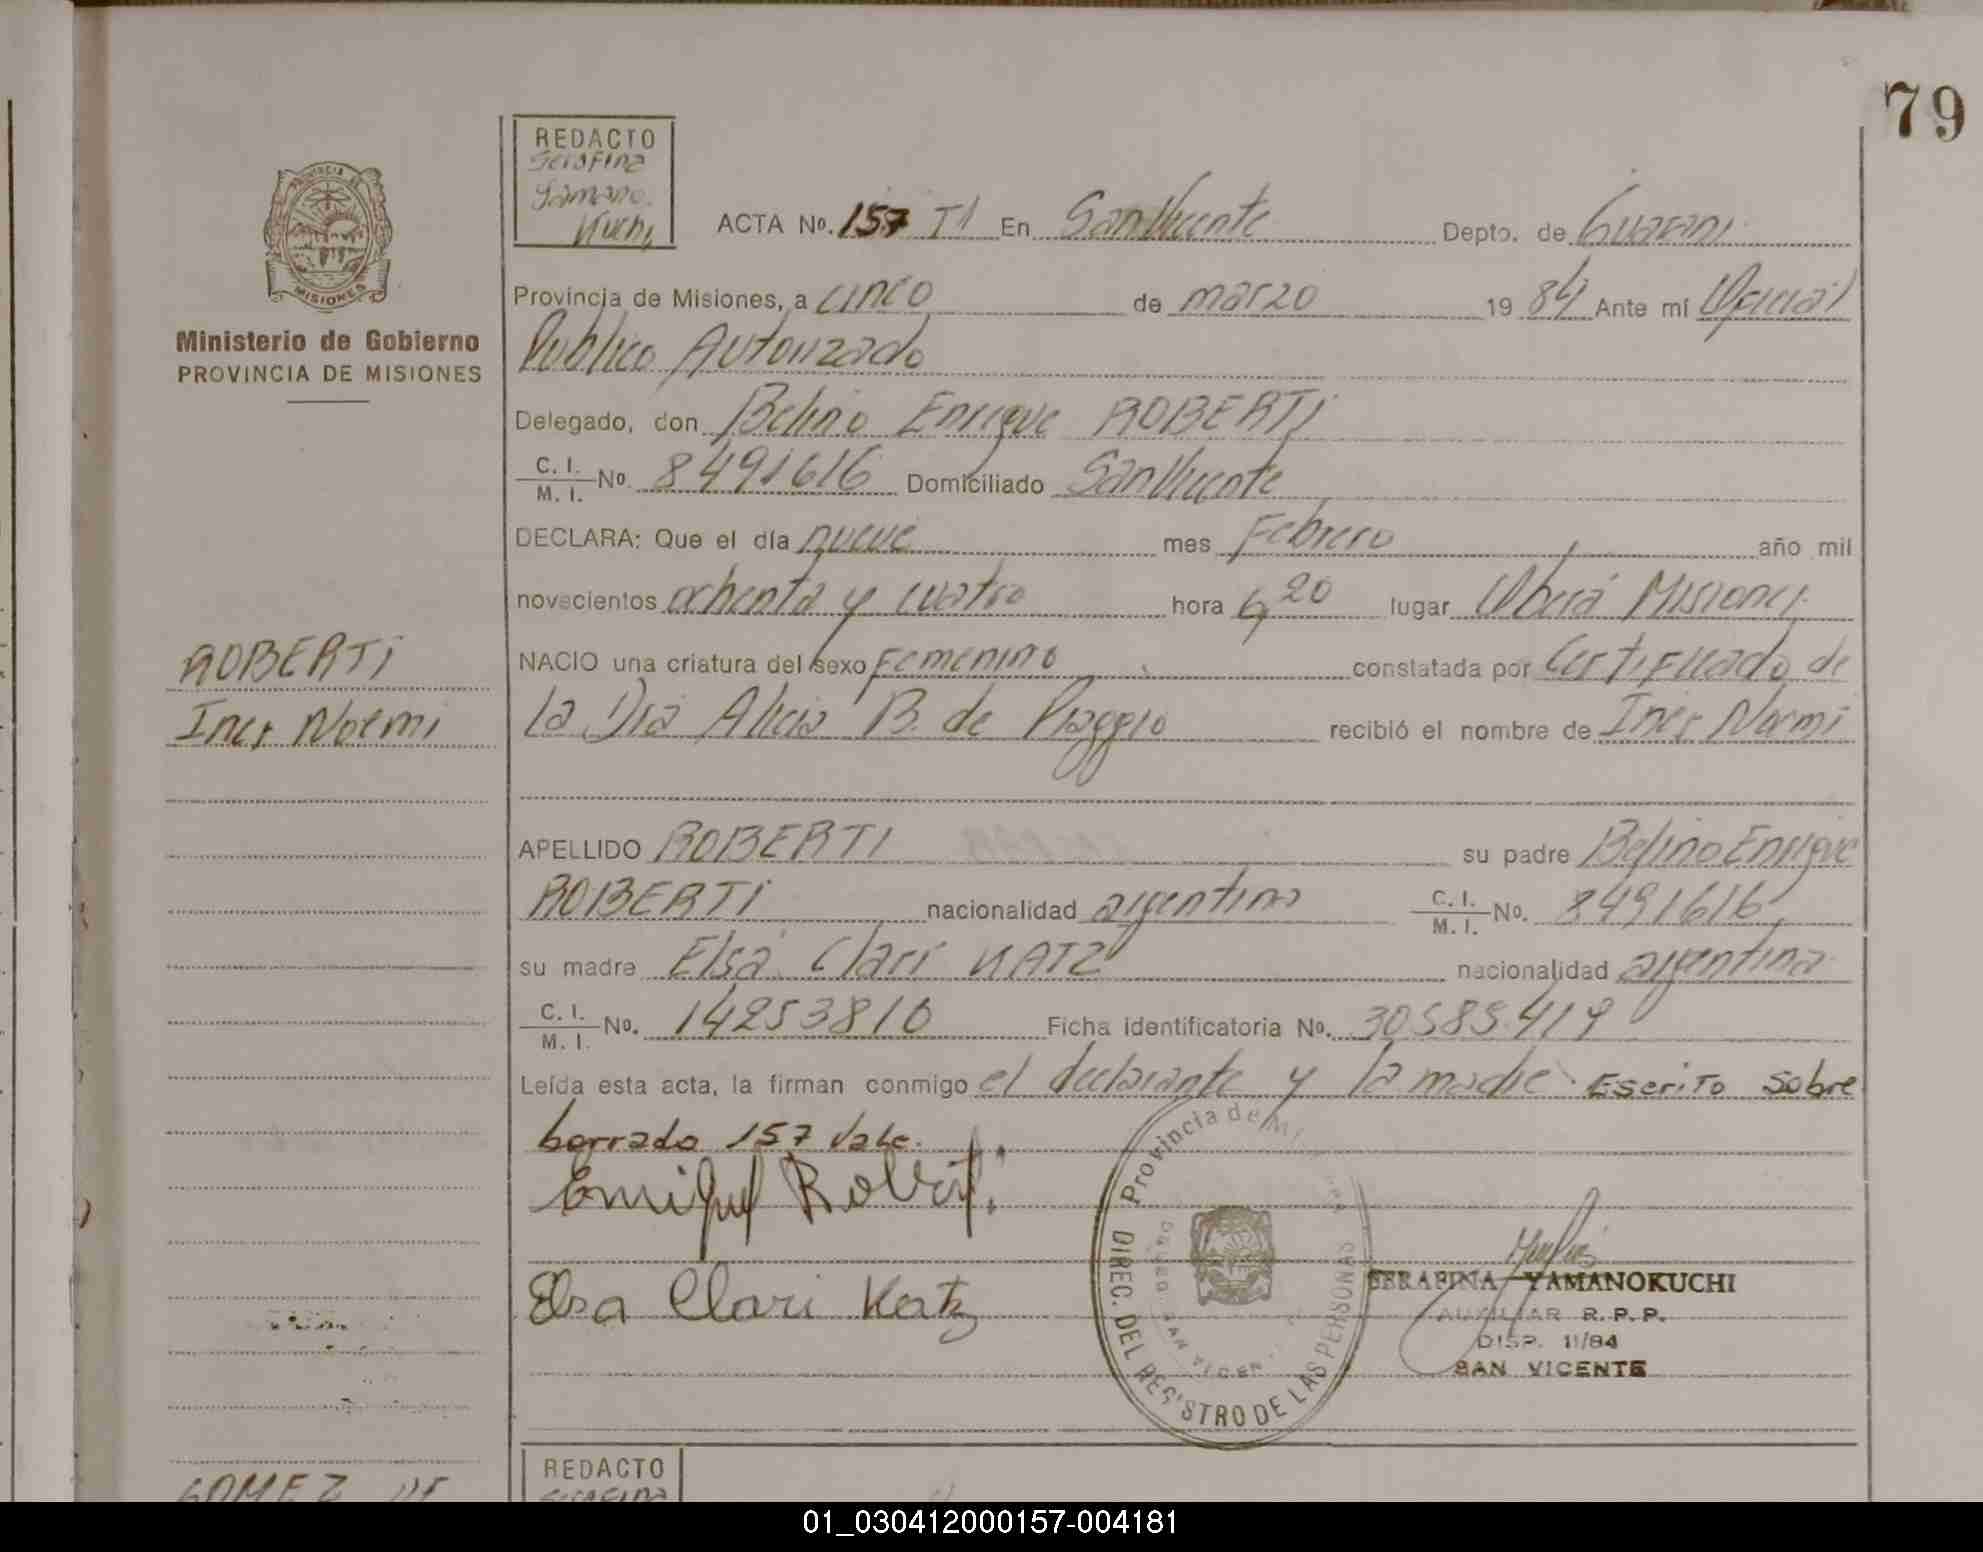 79
REDACTO
Serafina
Yamano
Kuchi
PROVINCIA DE
MISIONES
Ministerio de Gobierno
PROVINCIA DE MISIONES
ACTA No. 157 T1 En San Vicente Depto. de Guarani
Provincia de Misiones, a cinco de marzo 19 84 Ante mí Oficial
Publico Autorizado
Delegado, don Belino Enrique ROBERTI
C. I. / M. I. No. 8491616 Domiciliado San Vicente
DECLARA: Que el día nueve mes Febrero año mil
novecientos ochenta y cuatro hora 6,20 lugar Oberá Misiones
NACIO una criatura del sexo Femenino constatada por Certificado de
la Dra Alicia B. de Piaggio recibió el nombre de Ines Noemi
ROBERTI
Ines Noemi
APELLIDO ROBERTI su padre Belino Enrique
ROBERTI nacionalidad argentina C. I. / M. I. No. 8491616
su madre Elsa Clari KATZ nacionalidad argentina
C. I. / M. I. No. 14253810 Ficha identificatoria No. 30.585.419
Leída esta acta, la firman conmigo el declarante y la madre Escrito sobre
borrado 157 Vale.
Enrique Roberti
Elsa Clari Katz
Provincia de
DIREC. DEL REGISTRO DE LAS PERSONAS
SERAFINA YAMANOKUCHI
AUXILIAR R.P.P.
DISP. 11/84
SAN VICENTE
REDACTO
Serafina
GOMEZ DE
01_030412000157-004181